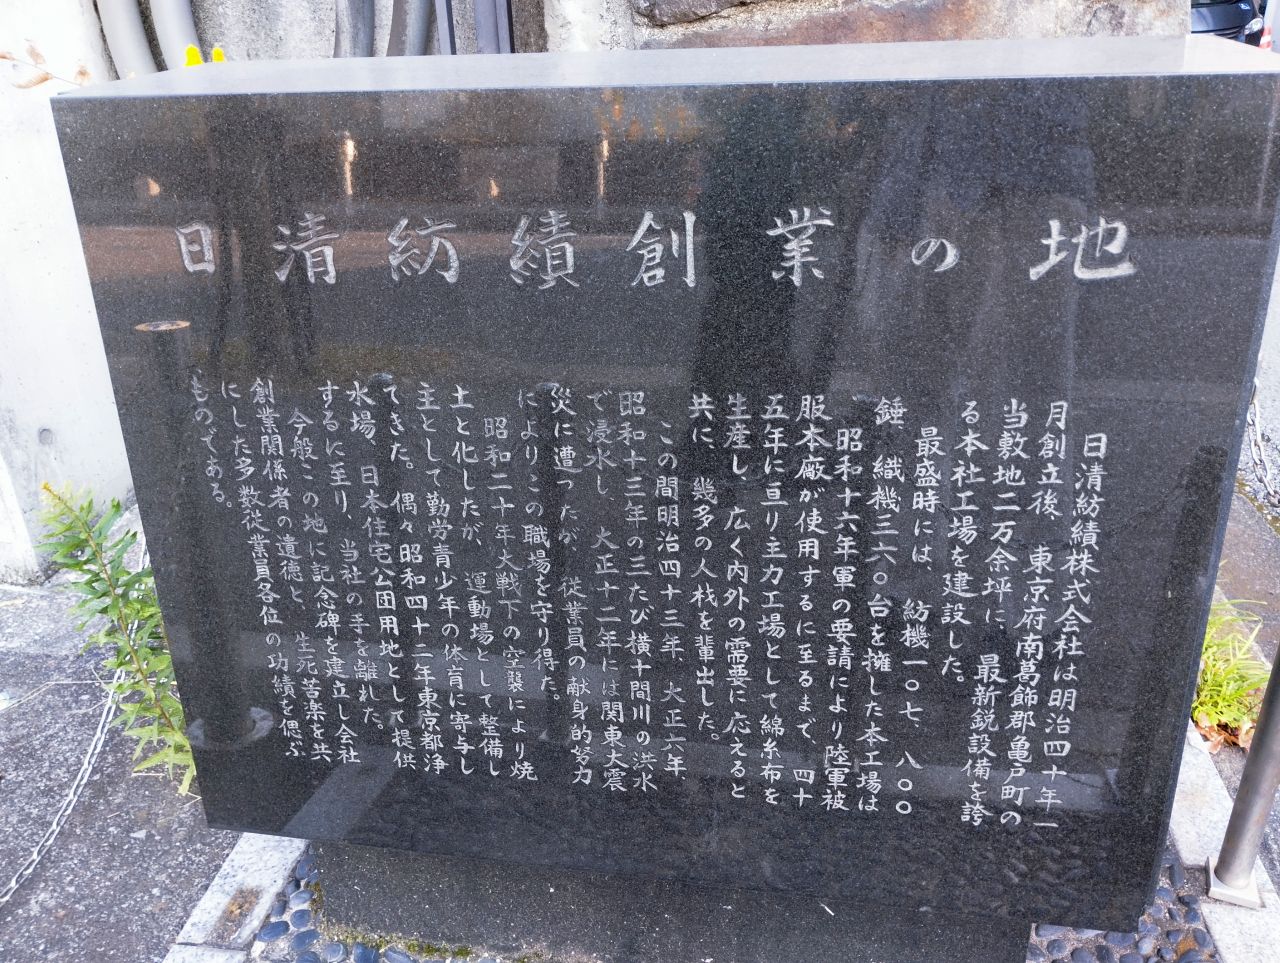 日清紡績創業の地
日清紡績株式会社は明治四十年一
月創立後、東京府南葛飾郡亀戸町の
当敷地二万余坪に、最新鋭設備を誇
る本社工場を建設した。
最盛時には、紡機一〇七、八〇〇
錘、織機三六〇台を擁した本工場は
、昭和十六年軍の要請により陸軍被
服本廠が使用するに至るまで、四十
五年に亘り主力工場として綿糸布を
生産し、広く内外の需要に応えると
共に、幾多の人材を輩出した。
この間明治四十三年、大正六年
昭和十三年の三たび横十間川の洪水
で浸水し、大正十二年には関東大震
災に遭ったが、従業員の献身的努力
によりこの職場を守り得た。
昭和二十年大戦下の空襲により焼
土と化したが、運動場として整備し
主として勤労青少年の体育に寄与し
てきた。偶々昭和四十二年東京都浄
水場、日本住宅公団用地として提供
するに至り、当社の手を離れた。
今般この地に記念碑を建立し会社
創業関係者の遺徳と、生死苦楽を共
にした多数従業員各位の功績を偲ぶ
ものである。